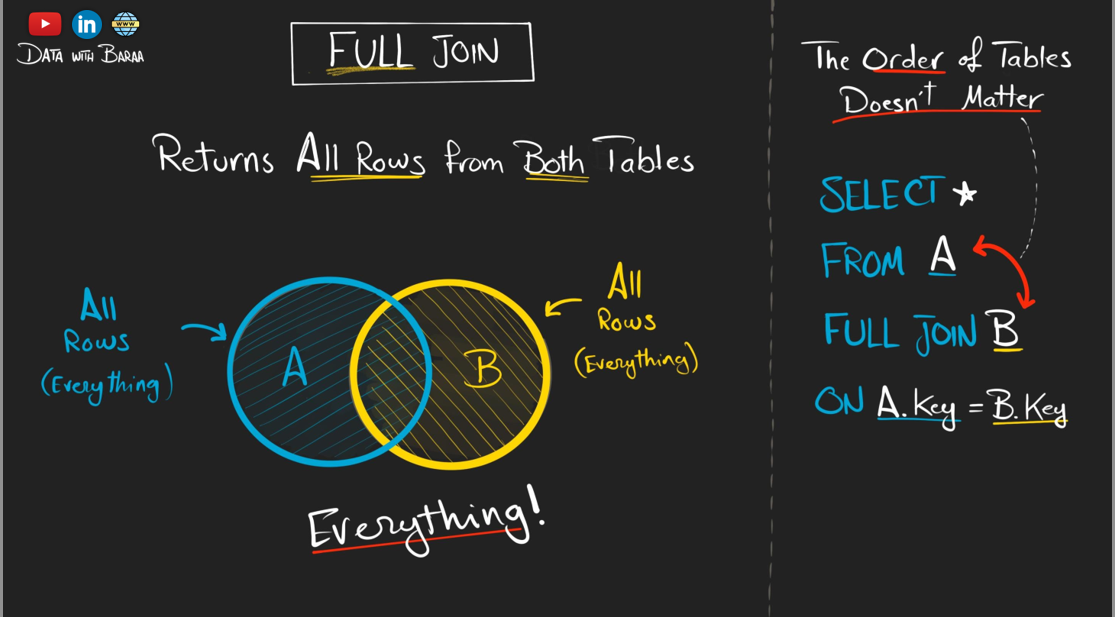 in
WWW
DATA WITH BARAA
FULL JOIN
Returns All Rows from Both Tables
All
Rows
(Everything)
A
B
All
Rows
(Everything)
Everything!
The Order of Tables
Doesn't Matter
SELECT *
FROM A
FULL JOIN B
ON A.Key = B.Key